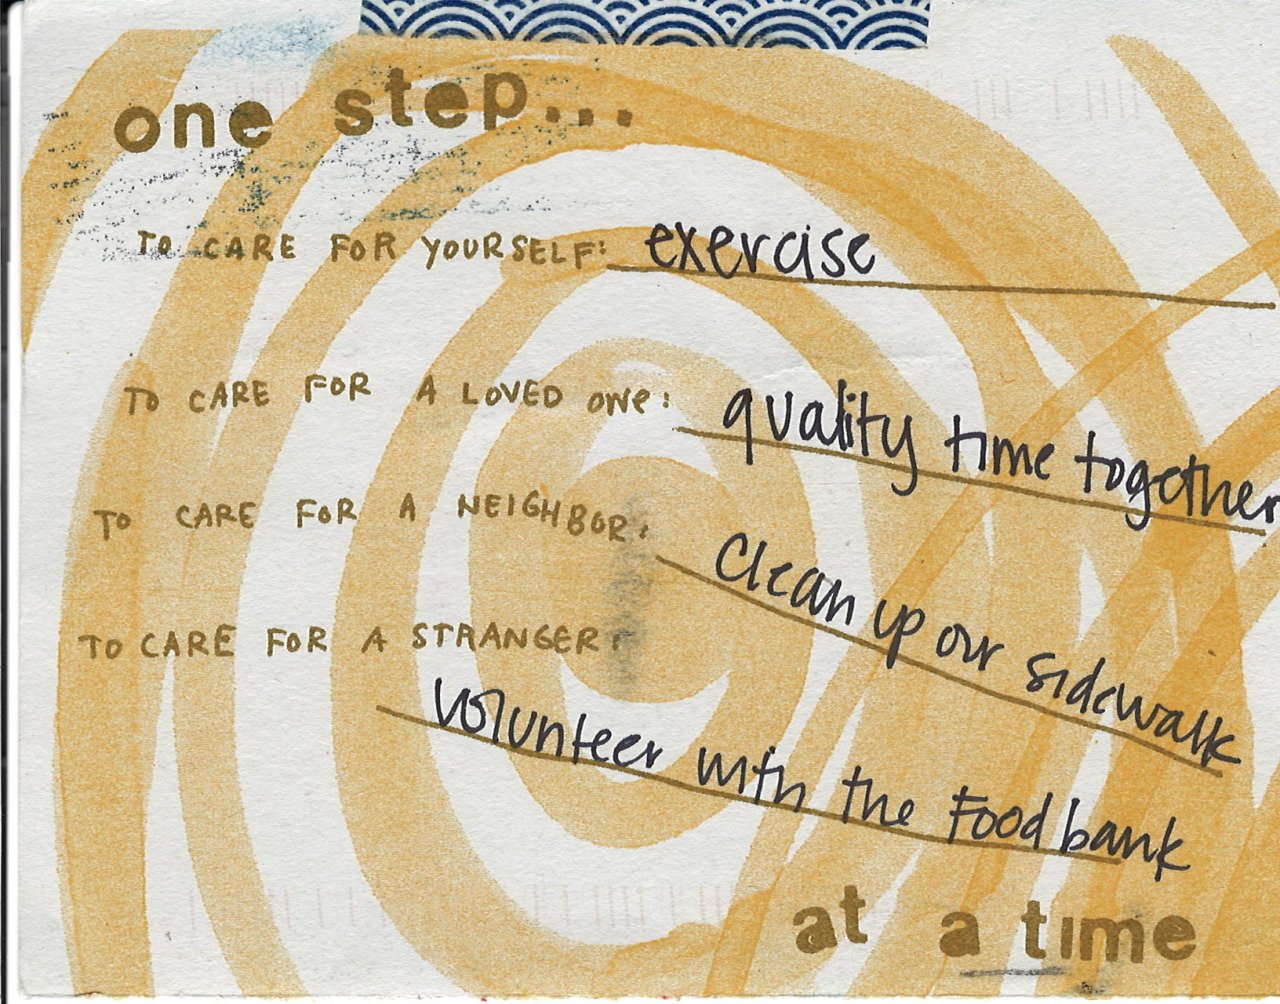 one step...
TO CARE FOR YOURSELF: exercise
TO CARE FOR A LOVED ONE: quality time together
TO CARE FOR A NEIGHBOR: Clean up our sidewalk
TO CARE FOR A STRANGER:
volunteer with the Food bank
at a time